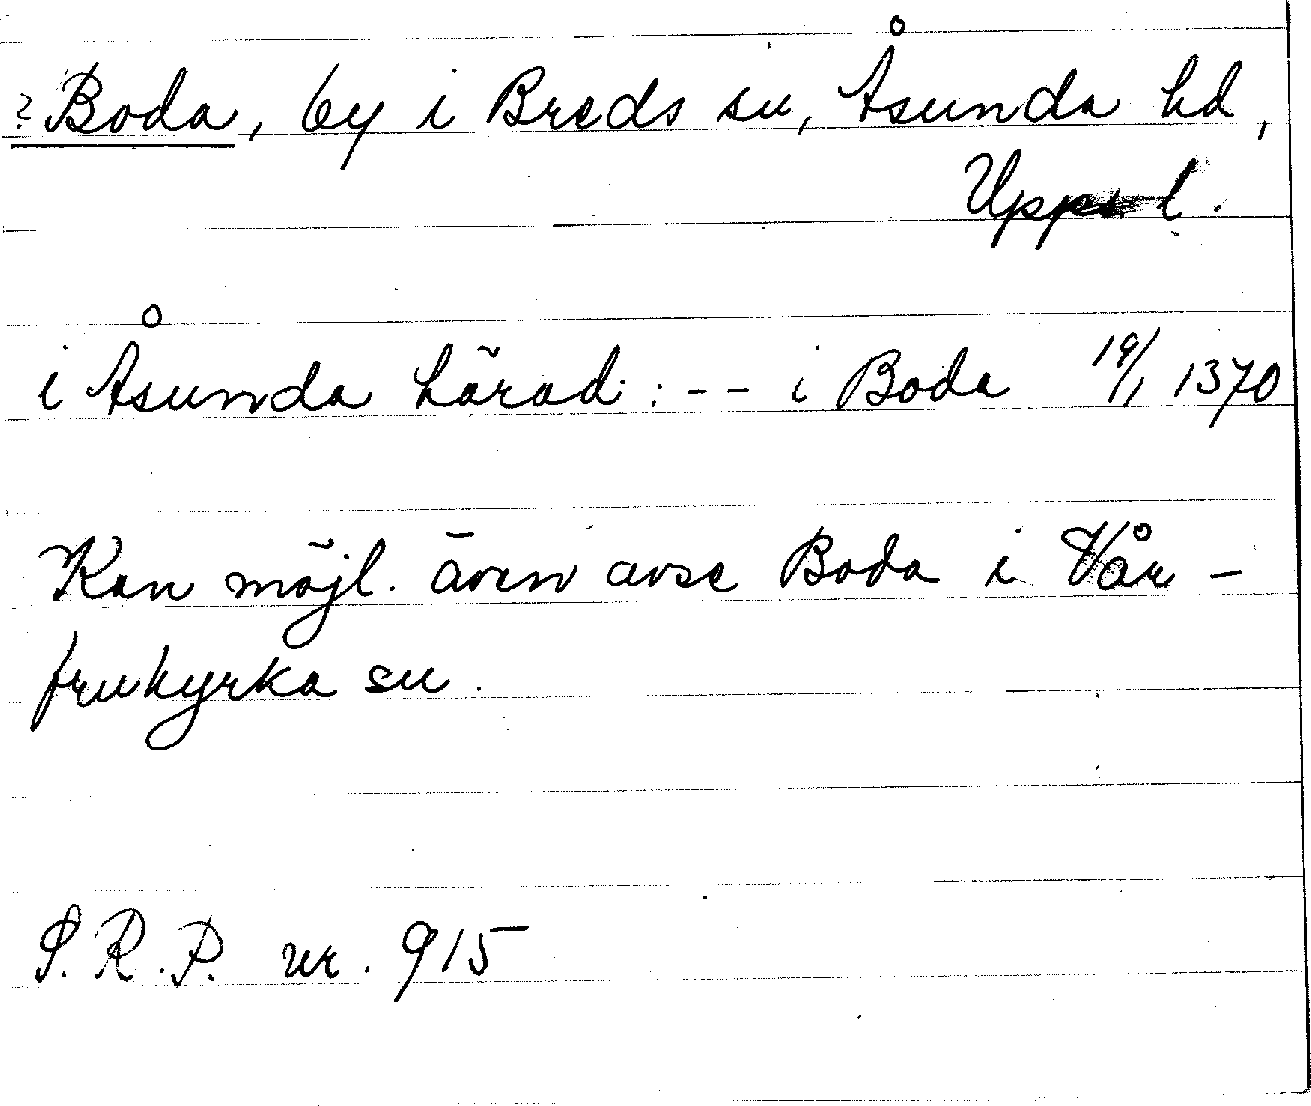 ? Boda, by i Breds sn, Åsunda hd,
Uppl.
i Åsunda härad: -- i Boda 19/1 1370
Kan möjl. även avse Boda i Vår-
frukyrka sn.
S.R.P. nr. 915